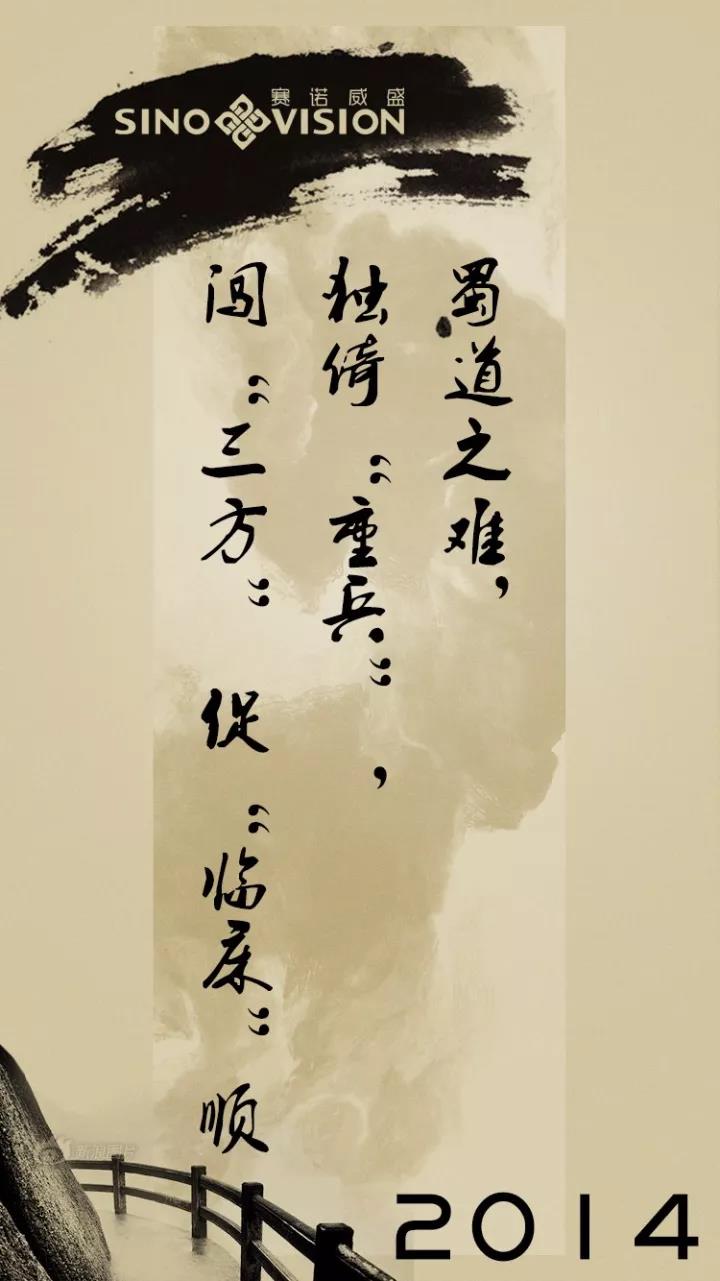 赛诺威盛
SINO VISION
蜀道之难，
独倚“重兵”，
闯“三方” 促“临床”顺
新浪图片
2014